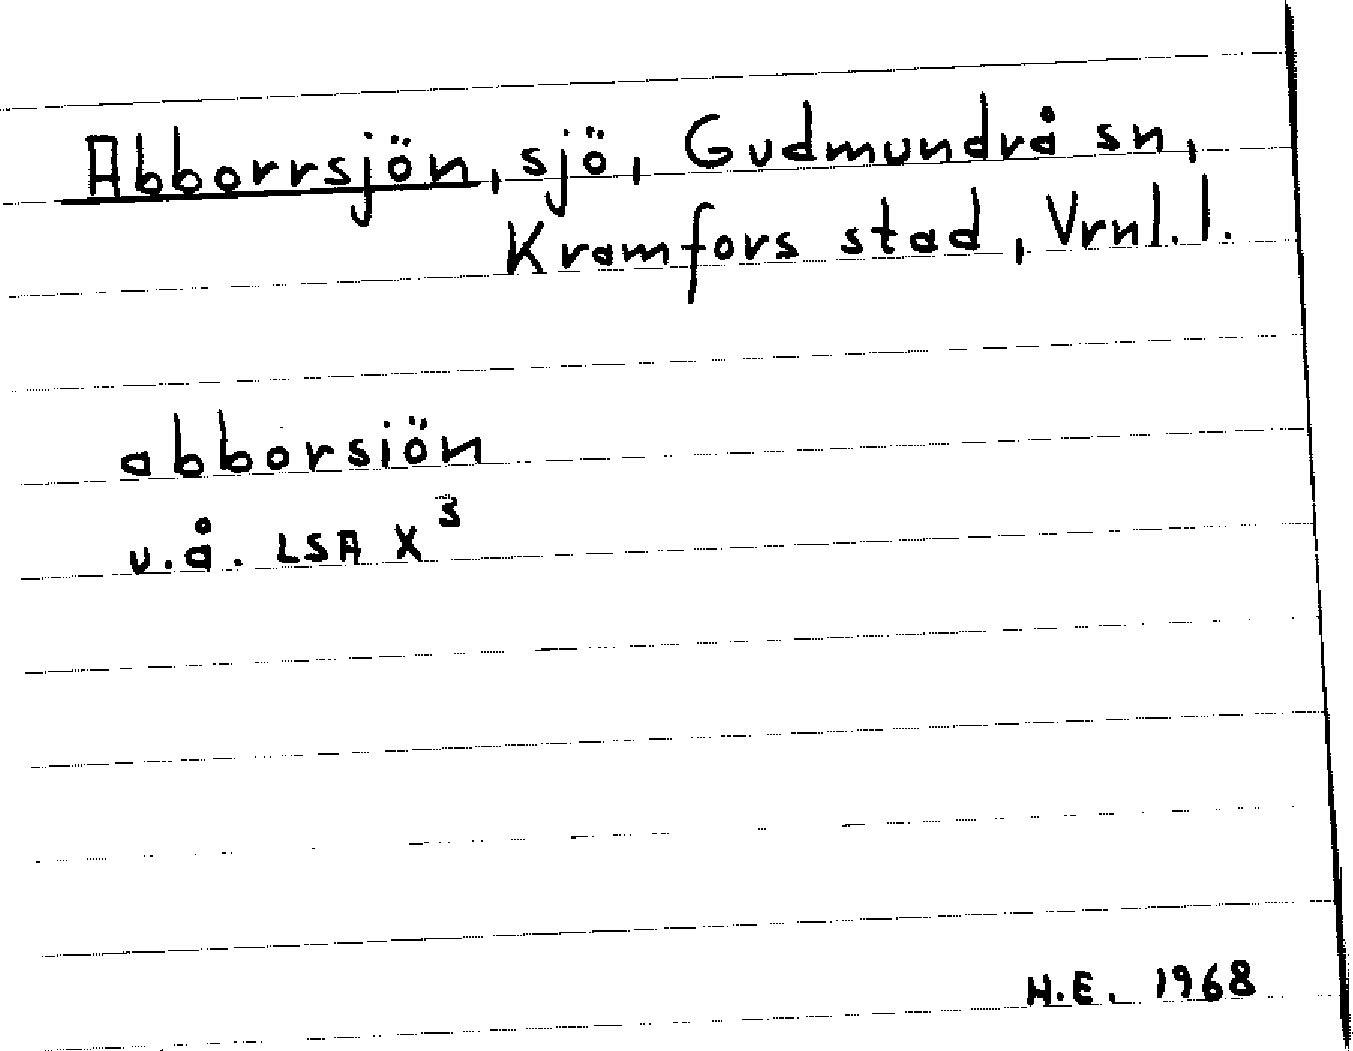 Abborrsjön, sjö, Gudmundrå sn,
Kramfors stad, Vrnl. l.
abborsiön
u.å. LSA X³
H.E. 1968